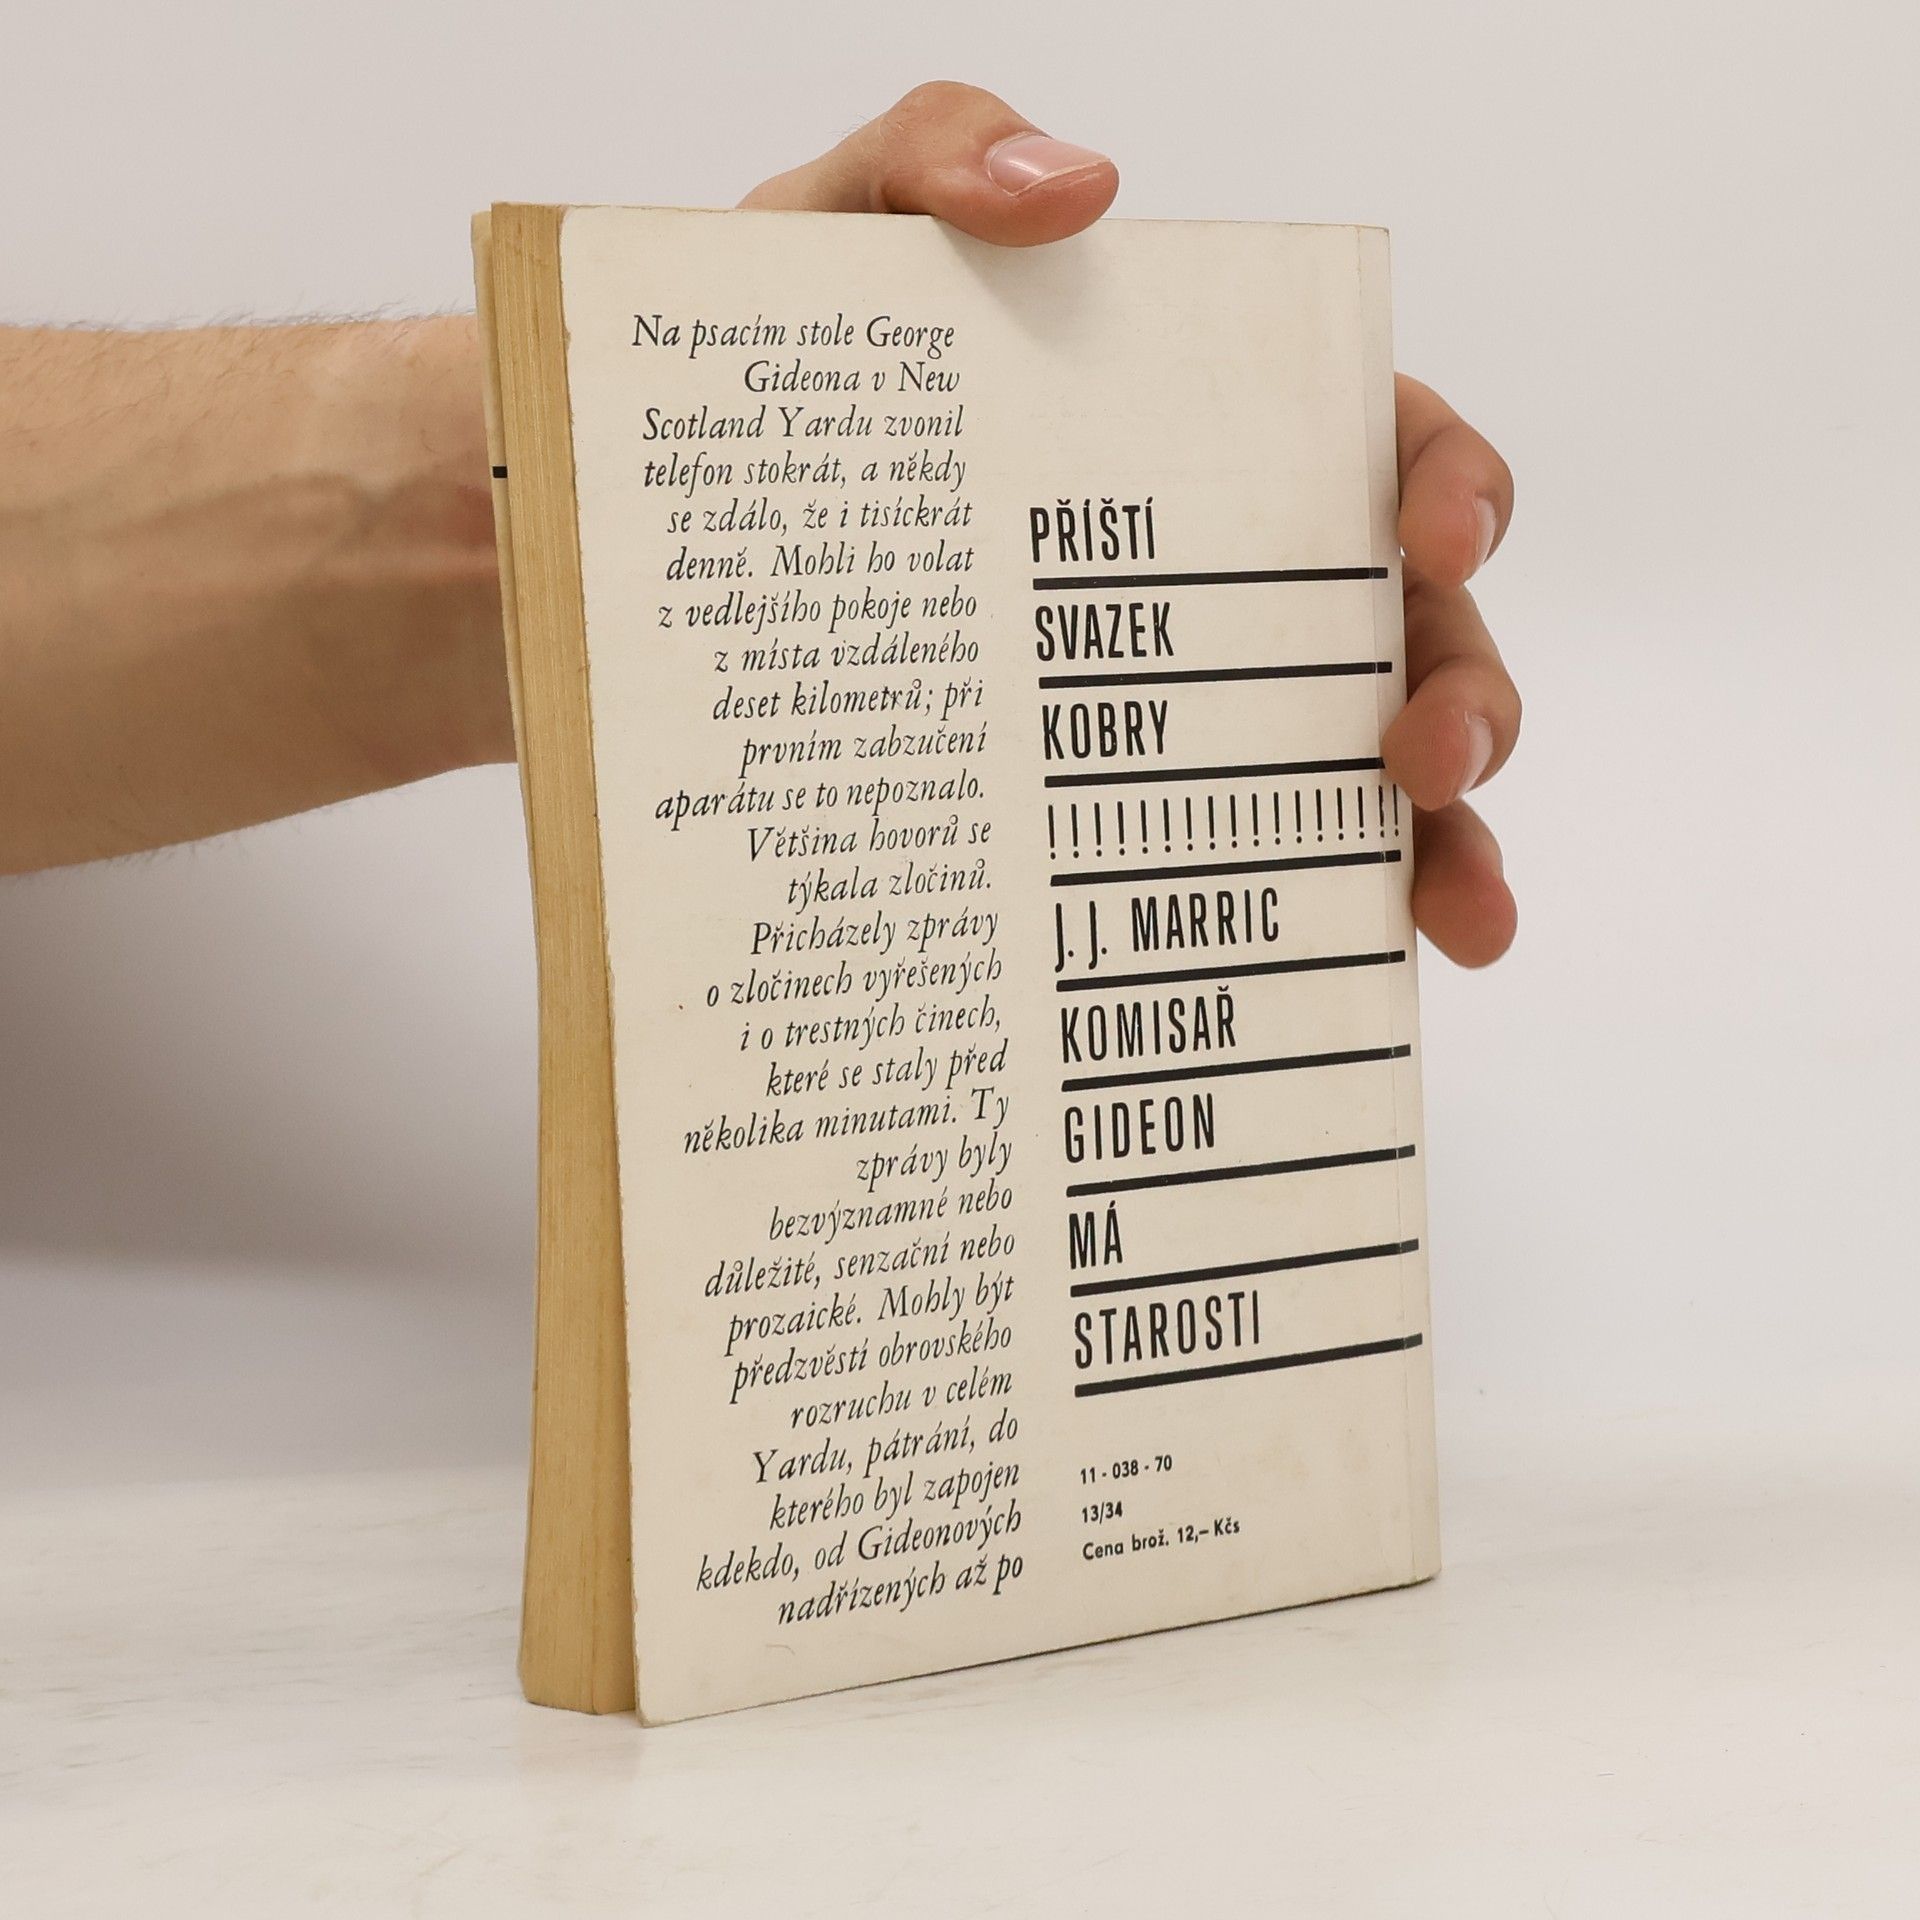 Na psacím stole George
Gideona v New
Scotland Yardu zvonil
telefon stokrát, a někdy
se zdálo, že i tisíckrát
denně. Mohli ho volat
z vedlejšího pokoje nebo
z místa vzdáleného
deset kilometrů; při
prvním zabzučení
aparátu se to nepoznalo.
Většina hovorů se
týkala zločinů.
Přicházely zprávy
o zločinech vyřešených
i o trestných činech,
které se staly před
několika minutami. Ty
zprávy byly
bezvýznamné nebo
důležité, senzační nebo
prozaické. Mohly být
předzvěstí obrovského
rozruchu v celém
Yardu, pátrání, do
kterého byl zapojen
kdekdo, od Gideonových
nadřízených až po
PŘÍŠTÍ
SVAZEK
KOBRY
!!!!!!!!!!!!!!!!
J. J. MARRIC
KOMISAŘ
GIDEON
MÁ
STAROSTI
11 - 038 - 70
13/34
Cena brož. 12,– Kčs